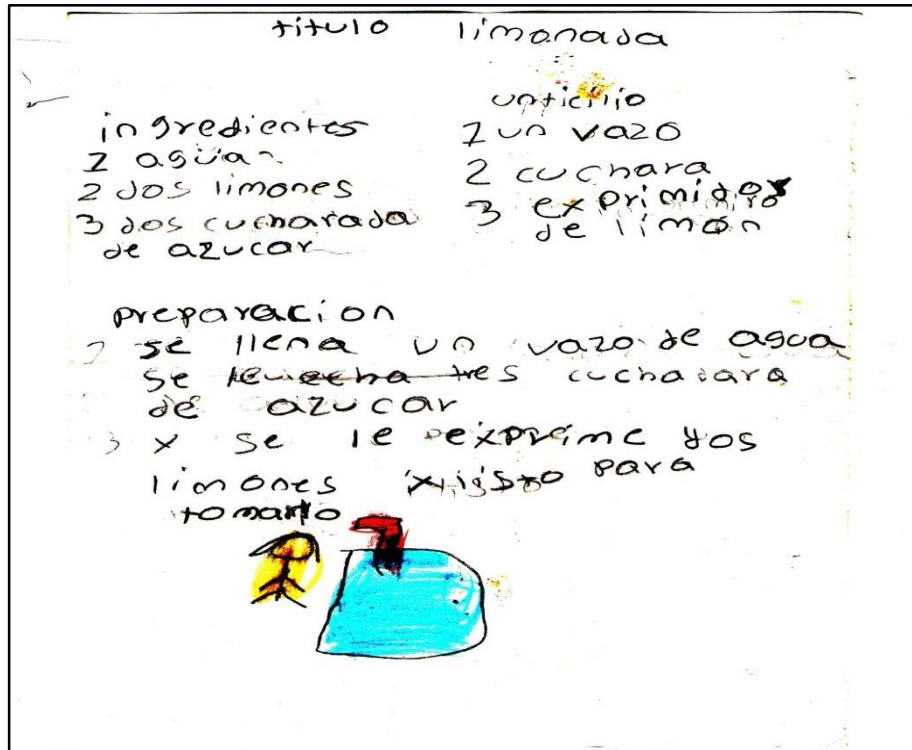 titulo limonada
ingredientes
1 agua
2 dos limones
3 dos cucharada
de azucar
unticilio
1 un vazo
2 cuchara
3 exprimidor
de limón
preparacion
2 se llena un vazo de agua
se le echa tres cuchasara
de azucar
3 x se le exprime dos
limones para
tomarlo